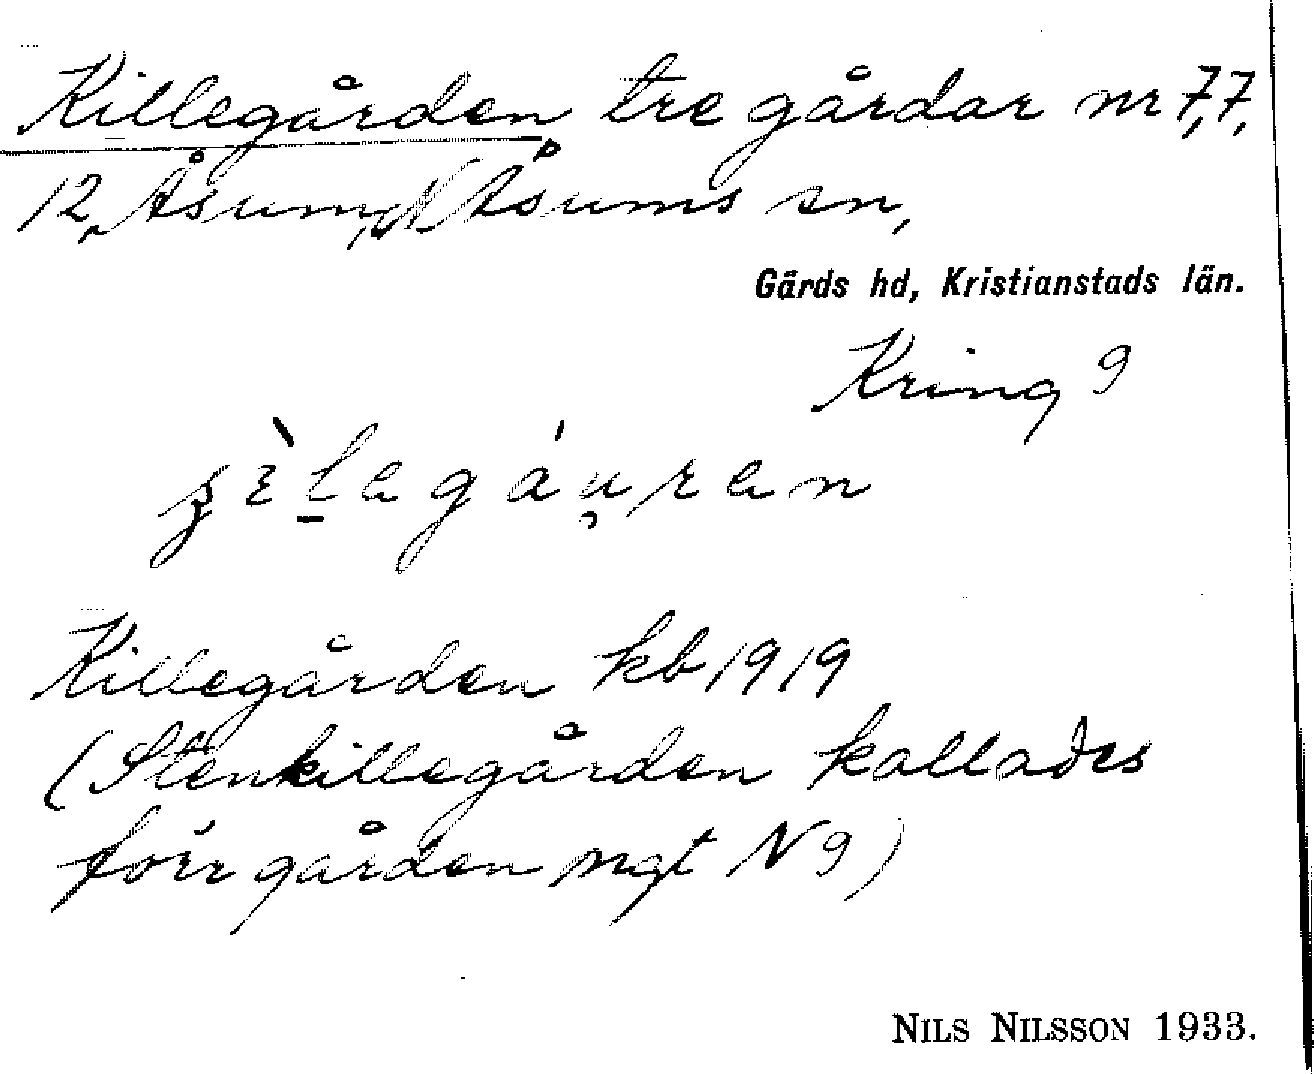 Killegården tre gårdar nr 7, 7,
12, Åsum, N Åsums sn,
Gärds hd, Kristianstads län.
Kring 9
Killegården kb 1919
(Stenkillegården kallades
förr gården mgt N 9)
NILS NILSSON 1933.